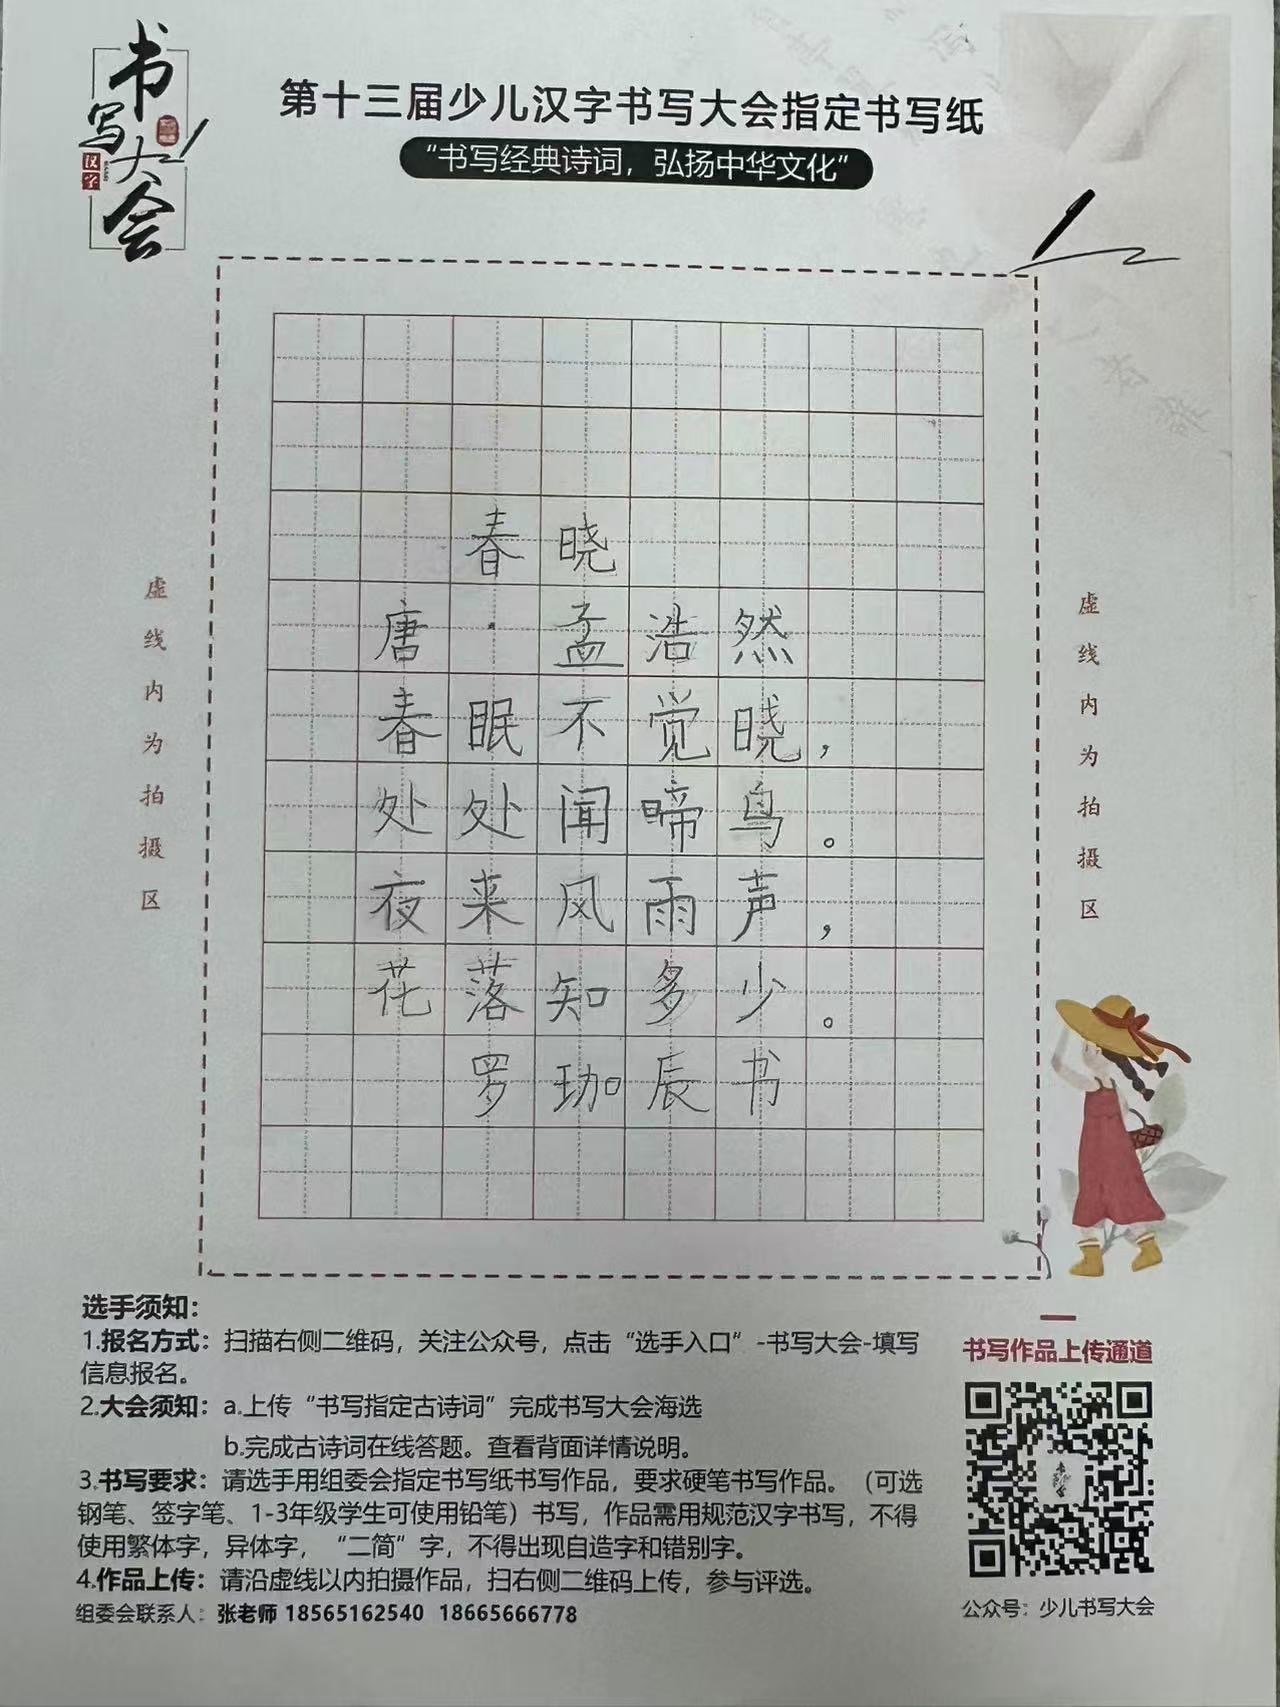 书写大会
汉字
第十三届少儿汉字书写大会指定书写纸
“书写经典诗词，弘扬中华文化”
春晓
唐·孟浩然
春眠不觉晓，
处处闻啼鸟。
夜来风雨声，
花落知多少。
罗珈辰书
虚线内为拍摄区
虚线内为拍摄区
选手须知：
1.报名方式：扫描右侧二维码，关注公众号，点击“选手入口”-书写大会-填写
信息报名。
2.大会须知：a.上传“书写指定古诗词”完成书写大会海选
b.完成古诗词在线答题。查看背面详情说明。
3.书写要求：请选手用组委会指定书写纸书写作品，要求硬笔书写作品。（可选
钢笔、签字笔、1-3年级学生可使用铅笔）书写，作品需用规范汉字书写，不得
使用繁体字，异体字，“二简”字，不得出现自造字和错别字。
4.作品上传：请沿虚线以内拍摄作品，扫右侧二维码上传，参与评选。
组委会联系人：张老师 18565162540 18665666778
书写作品上传通道
公众号：少儿书写大会